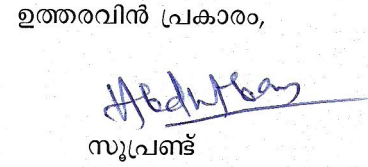 ഉത്തരവിൻ പ്രകാരം,
സൂപ്രണ്ട്